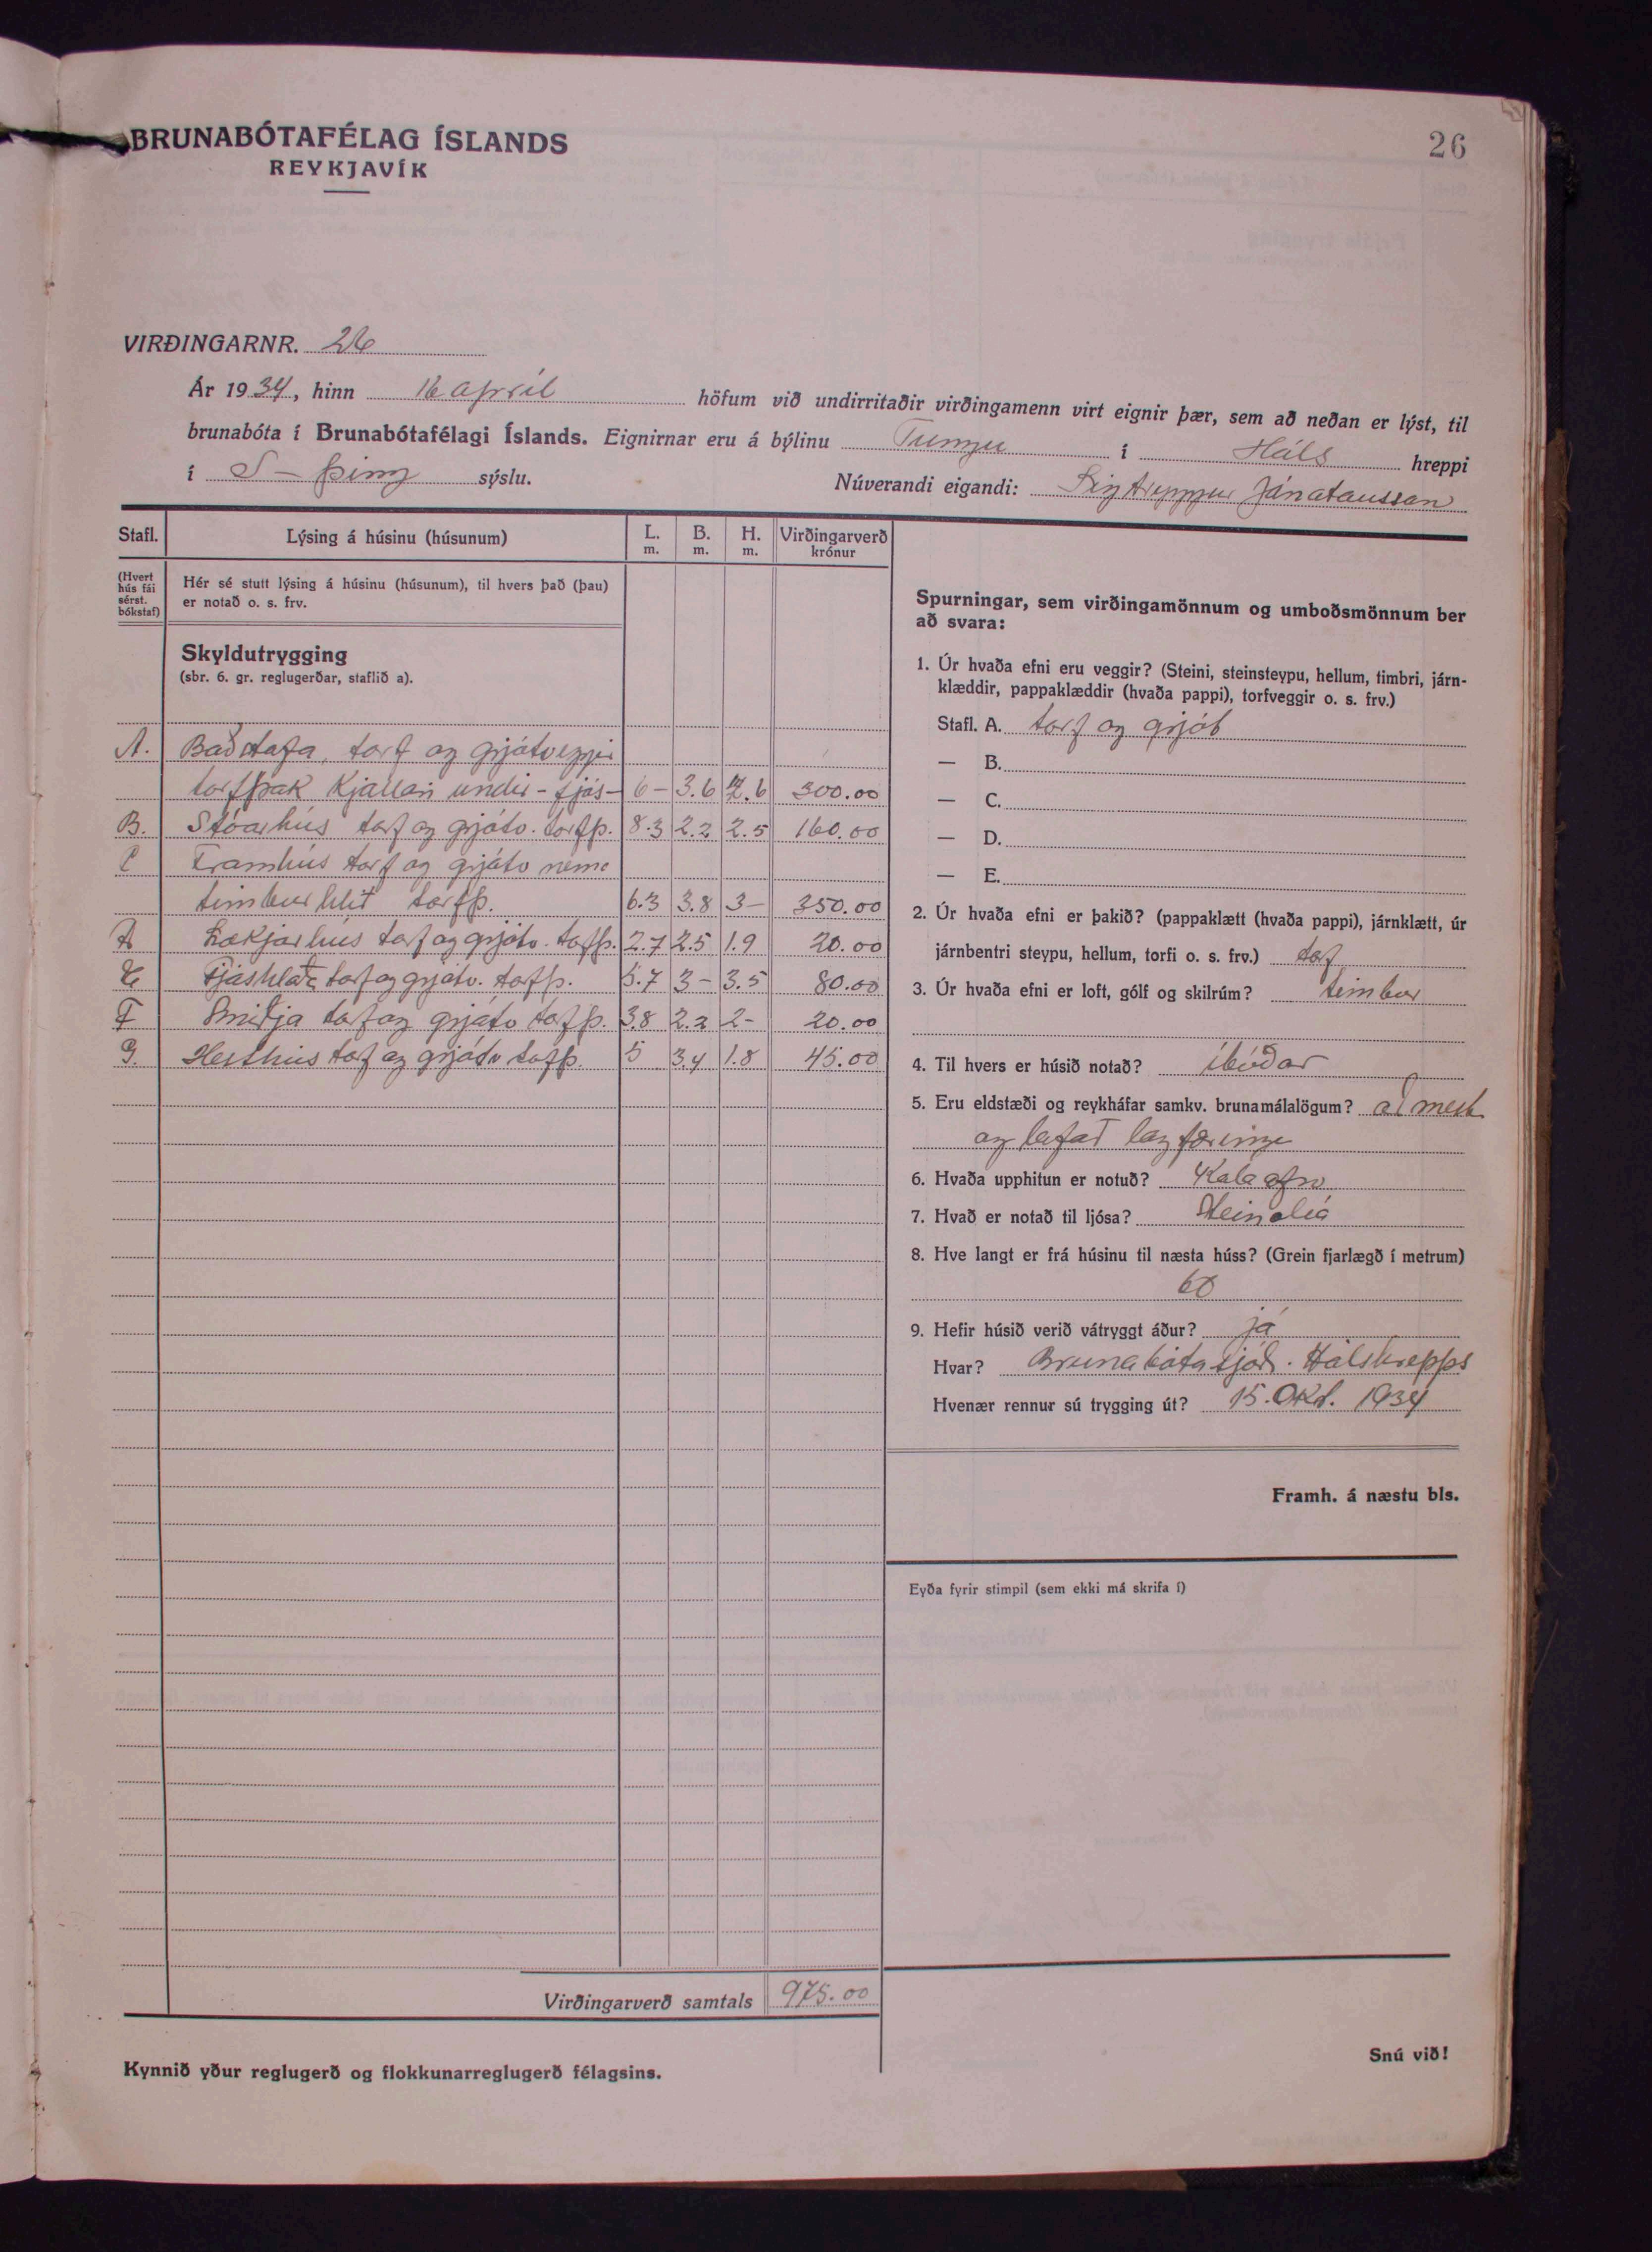 BRUNABÓTAFÉLAG ÍSLANDS
REYKJAVÍK
26
VIRÐINGARNR. 26
Ár 1934, hinn 16 apríl höfum við undirritaðir virðingamenn virt eignir þær, sem að neðan er lýst, til
brunabóta í Brunabótafélagi Íslands. Eignirnar eru á býlinu Tungu í Háls hreppi
í S-þing sýslu. Núverandi eigandi: Sigtryggur Jónatansson
Stafl. Lýsing á húsinu (húsunum) L. m. B. m. H. m. Virðingarverð krónur
(Hvert hús fái sérst. bókstaf)
Hér sé stutt lýsing á húsinu (húsunum), til hvers það (þau)
er notað o. s. frv.
Skyldutrygging
(sbr. 6. gr. reglugerðar, staflið a).
A. Baðstofa, torf og grjótveggir
torfþak Kjallari undir - fjós - 6 - 3.6 .6 300.00
B. Stóarhús torf og grjótv. torfþ. 8.3 2.2 2.5 160.00
C Framhús torf og grjótv neme
timburhlið torfþ. 6.3 3.8 3- 350.00
Lækjarhús torf og grjótv. torfþ. 2.7 2.5 1.9 20.00
E Fjóshlaða torf og grjótv. torfþ. 5.7 3- 3.5 80.00
F Smiðja torf og grjótv torfþ. 3.8 2.2 2- 20.00
G. Hesthús torf og grjótv torfþ. 5 3.4 1.8 45.00
Virðingarverð samtals 975.00
Kynnið yður reglugerð og flokkunarreglugerð félagsins.
Spurningar, sem virðingamönnum og umboðsmönnum ber
að svara:
1. Úr hvaða efni eru veggir? (Steini, steinsteypu, hellum, timbri, járn-
klæddir, pappaklæddir (hvaða pappi), torfveggir o. s. frv.)
Stafl. A. torf og grjót
— B.
— C.
— D.
— E.
2. Úr hvaða efni er þakið? (pappaklætt (hvaða pappi), járnklætt, úr
járnbentri steypu, hellum, torfi o. s. frv.) torf
3. Úr hvaða efni er loft, gólf og skilrúm? timbur
4. Til hvers er húsið notað? íbúðar
5. Eru eldstæði og reykháfar samkv. brunamálalögum? að mestu
og lofað lagfæringu
6. Hvaða upphitun er notuð? Kolaofn
7. Hvað er notað til ljósa? Steinolía
8. Hve langt er frá húsinu til næsta húss? (Grein fjarlægð í metrum)
60
9. Hefir húsið verið vátryggt áður? já
Hvar? Brunabótasjóð. Hálshrepps
Hvenær rennur sú trygging út? 15. Okt. 1934
Framh. á næstu bls.
Eyða fyrir stimpil (sem ekki má skrifa í)
Snú við!